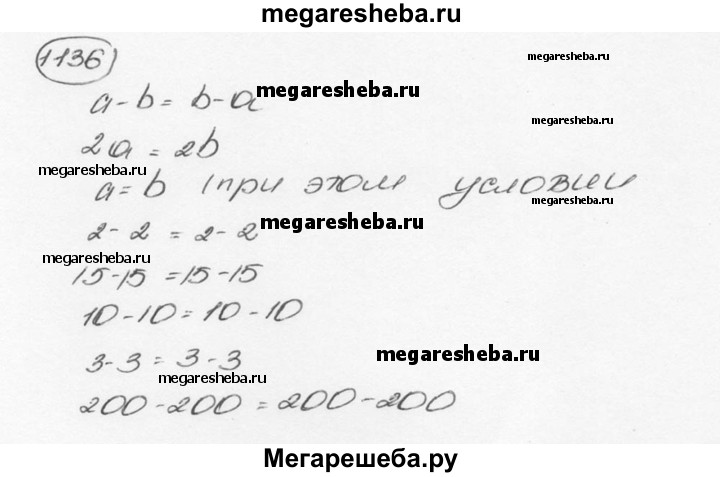 megaresheba.ru
1136)
megaresheba.ru
a-b = b-a
megaresheba.ru
megaresheba.ru
2a = 2b
megaresheba.ru
a = b (при этом условии
megaresheba.ru
2-2 = 2-2
megaresheba.ru
megaresheba.ru
15-15 = 15-15
10-10 = 10-10
3-3 = 3-3
megaresheba.ru
megaresheba.ru
200-200 = 200-200
Мегарешеба.ру